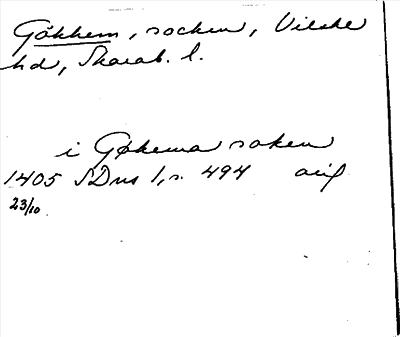 Gökhem, socken, Vilske
hd, Skarab. l.
i Gøkema soken
1405 SDns 1, s. 494 orig
23/10.